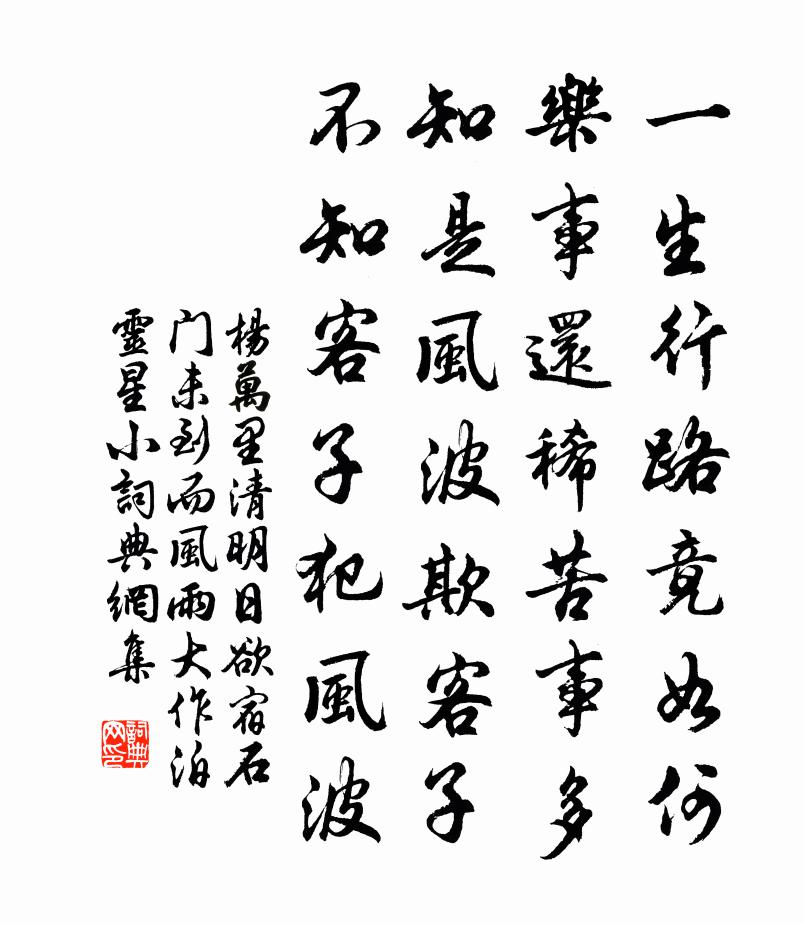 一生行路竟如何
樂事還稀苦事多
知是風波欺客子
不知客子犯風波
楊萬里清明日欲宿石
門未到而風雨大作泊
靈星小詞典網集
詞典
网印